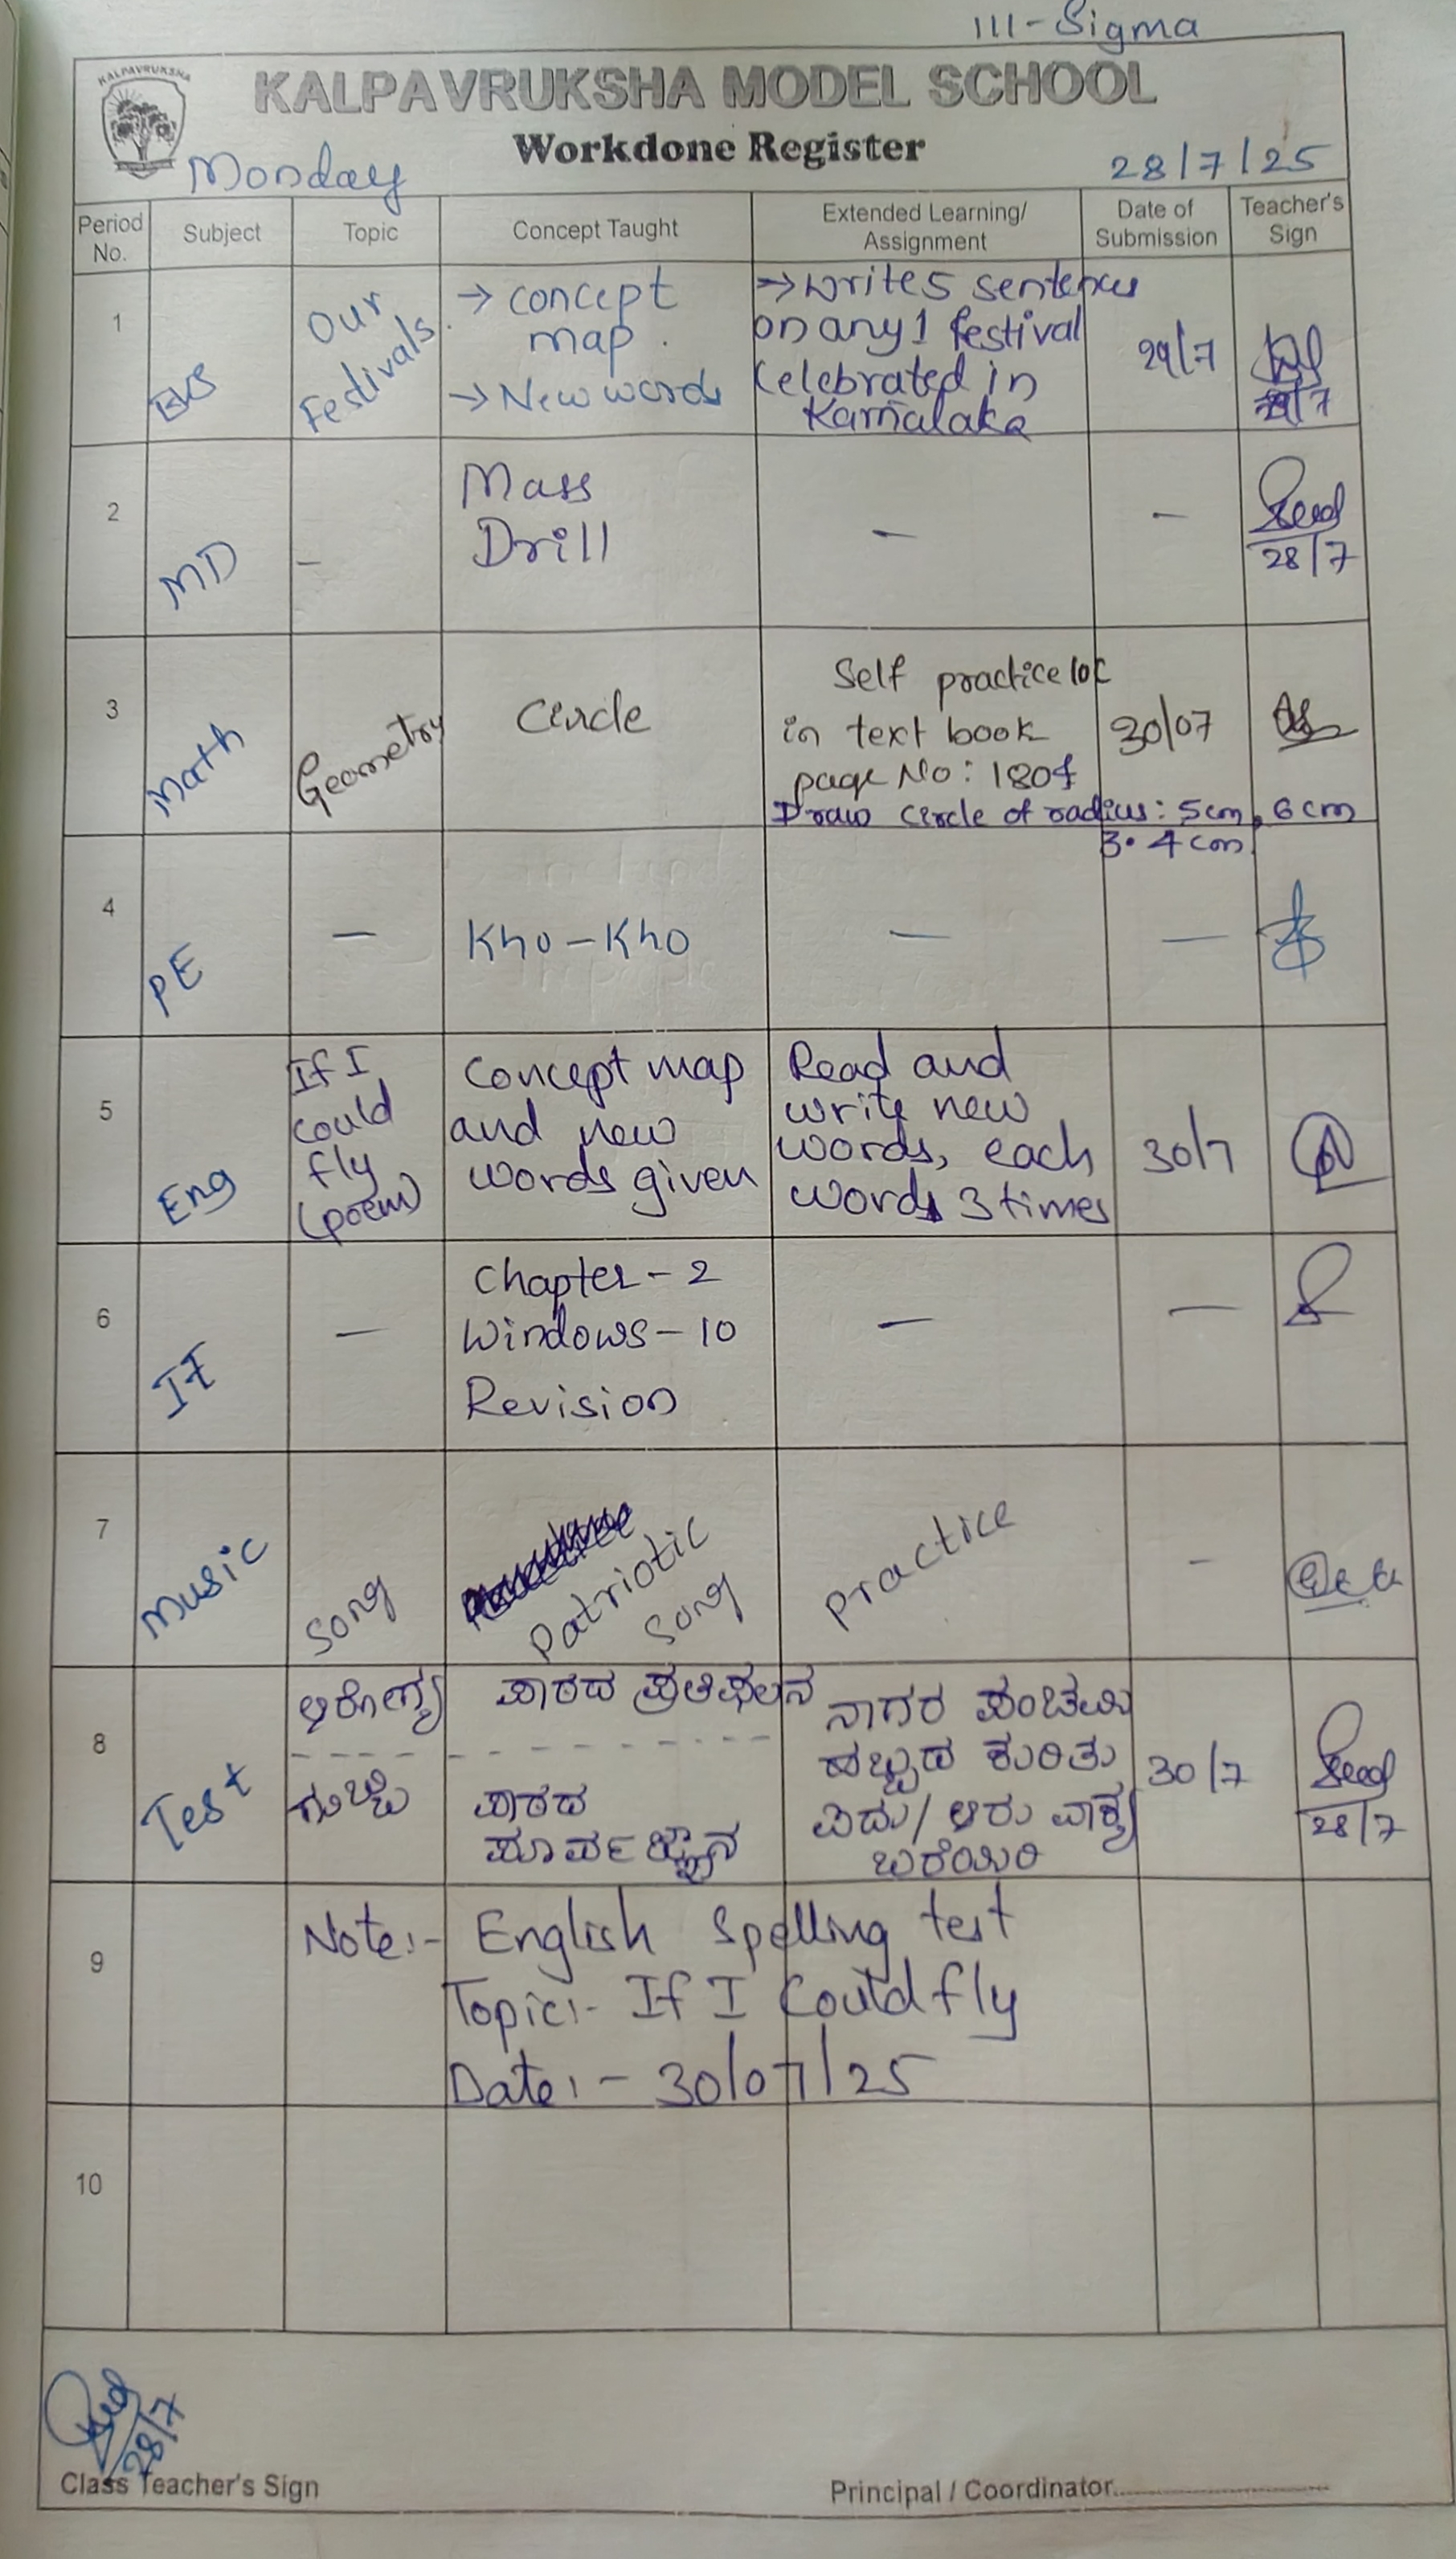 III - Sigma
KALPAVRUKSHA
KALPAVRUKSHA MODEL SCHOOL
Workdone Register
Monday
28/7/25
Period No.
Subject
Topic
Concept Taught
Extended Learning/ Assignment
Date of Submission
Teacher's Sign
1
EVS
Our
Festivals.
→ concept
map.
→ New words
→ write 5 sentences
on any 1 festival
Celebrated in
Karnataka
29/7
2
MD
-
Mass
Drill
-
-
28/7
3
Math
Geometry
Circle
Self practice
in text book
page No:
Draw circle of radius: 5cm, 6cm
3.4cm
30/07
4
PE
-
Kho-Kho
-
-
5
Eng
If I
could
fly
(poem)
Concept map
and new
words given
Read and
write new
words, each
words 3 times
30/7
6
IT
-
Chapter - 2
Windows - 10
Revision
-
-
7
Music
Song
Patriotic
Song
Practice
-
8
Test
ಆರೋಗ್ಯ
ಗುಬ್ಬಿ
ಪಾಠದ ಪ್ರತಿಫಲನ
ಪಾಠದ
ಪೂರ್ವಜ್ಞಾನ
ನಾಗರ ಪಂಚಮಿ
ಹಬ್ಬದ ಕುರಿತು
ಐದು/ ಆರು ವಾಕ್ಯ
ಬರೆಯಿರಿ
30/7
28/7
9
Note:- English Spelling test
Topic:- If I Could fly
Date:- 30/07/25
10
28/7
Class Teacher's Sign
Principal / Coordinator